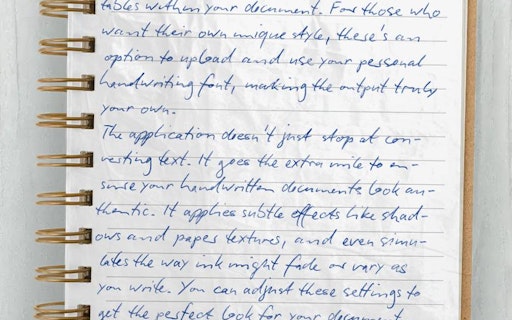 tables within your document. For those who
want their own unique style, there's an
option to upload and use your personal
handwriting font, making the output truly
your own.
The application doesn't just stop at con-
verting text. It goes the extra mile to en-
sure your handwritten documents look au-
thentic. It applies subtle effects like shad-
ows and paper textures, and even simu-
lates the way ink might fade or vary as
you write. You can adjust these settings to
get the perfect look for your document